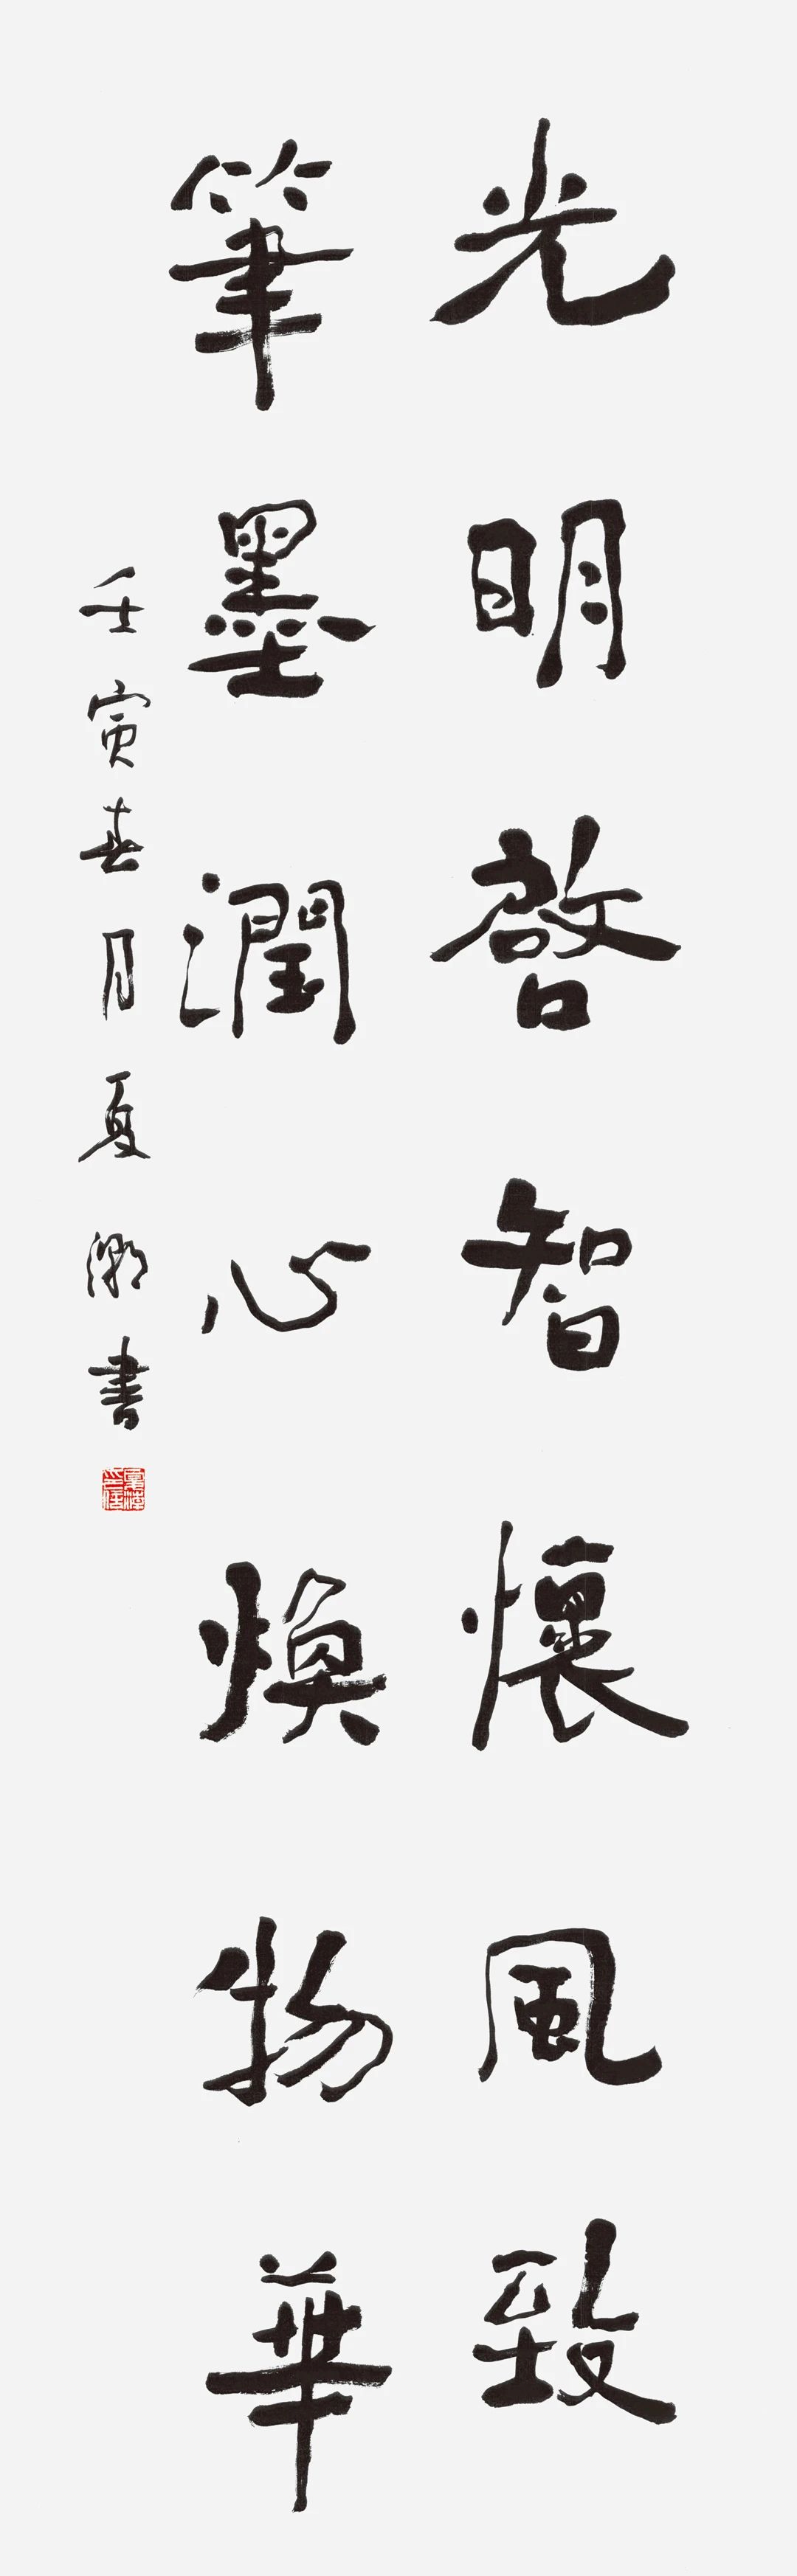 光明啓智懷風致
筆墨潤心煥物華
壬寅春月夏潮書